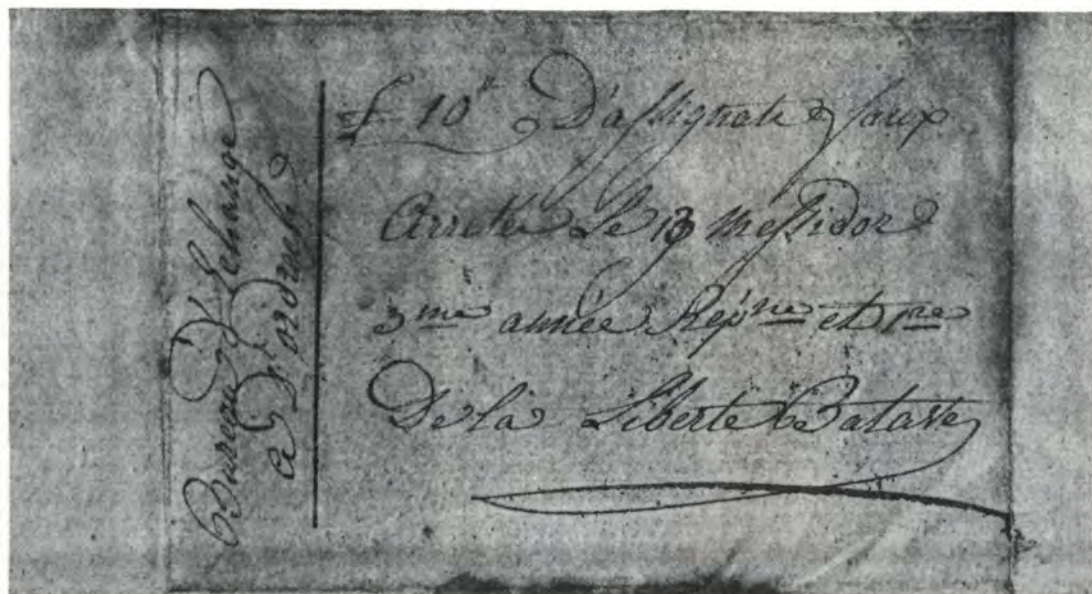 Bureau D'Echange
a Dordrech
£ 10 # D'assignats faux
Arretté Le 13 Messidor
3me année Répne et 1re
De la Liberte Batave